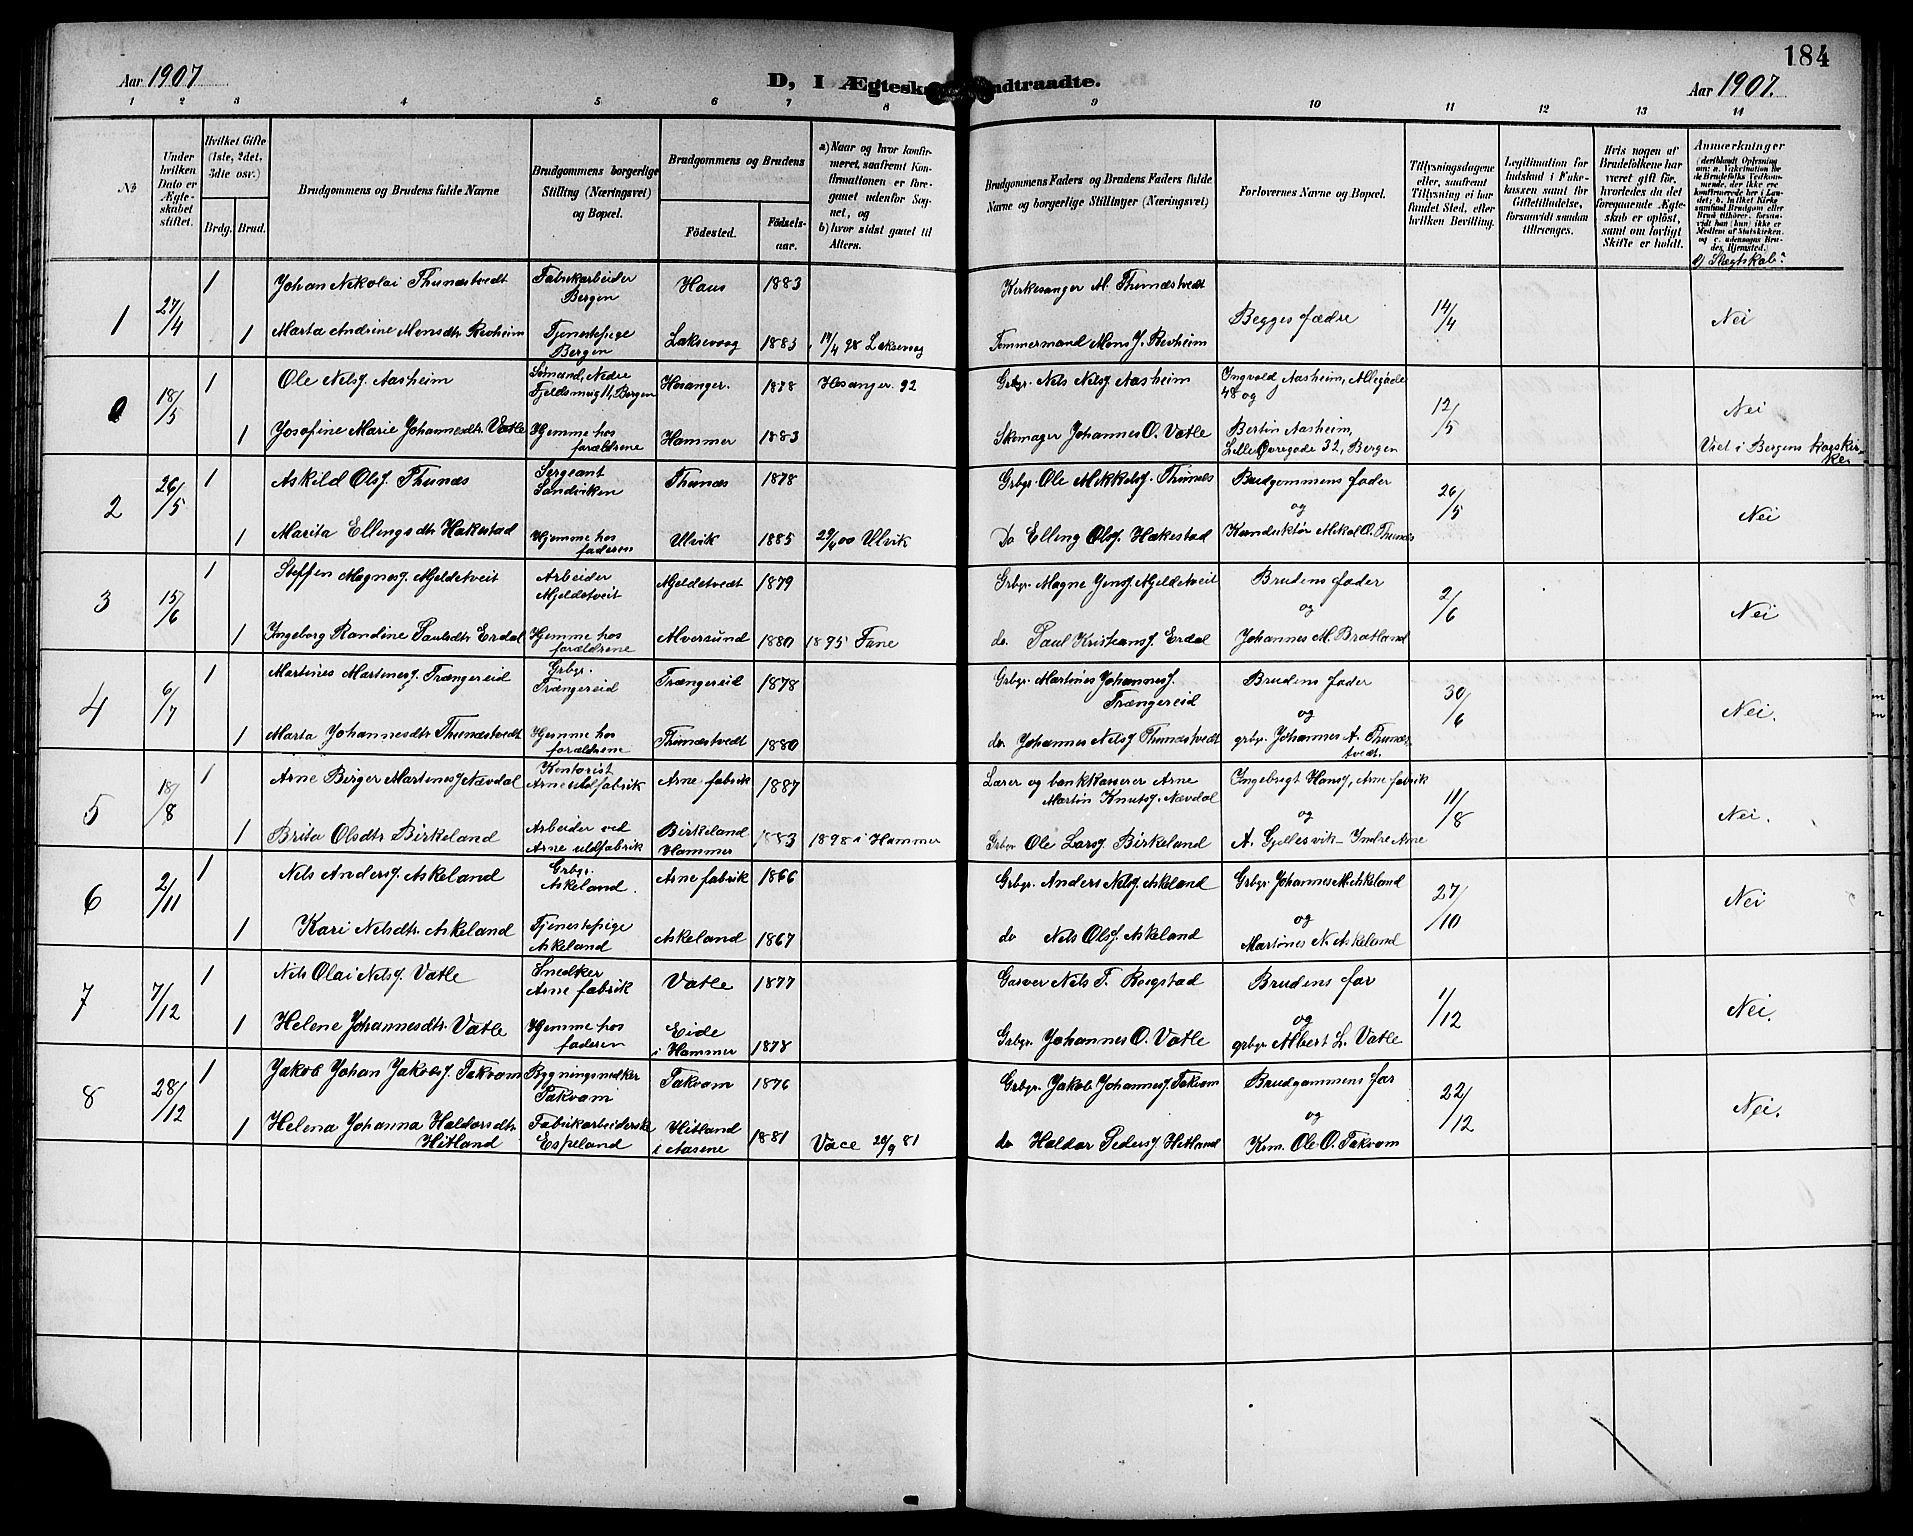 184
Aar 1907 D, I Ægtesk ndtraadte. Aar 1907.
1 2 3 4 5 6 7 8 9 10 11 12 13 14
No
Under hvilken Dato er Ægteskabet stiftet.
Hvilket Gifte (1ste, 2det, 3die osv.)
Brdg. Brud.
Brudgommens og Brudens fulde Navne
Brudgommens borgerlige Stilling (Næringsvei) og Bopæl.
Brudgommens og Brudens
Fødested. Fødselsaar.
a) Naar og hvor konfirmeret, saafremt Konfirmationen er foregaaet udenfor Sognet, og
b) hvor sidst gaaet til Alters.
Brudgommens Faders og Brudens Faders fulde Navne og borgerlige Stillinger (Næringsvei)
Forlovernes Navne og Bopæl.
Tillysningsdagene eller, saafremt Tillysning ei har fundet Sted, efter hvilken Bevilling.
Legitimation for Indskud i Enkekassen samt for Giftetilladelse, forsaavidt saadan tiltrænges.
Hvis nogen af Brudefolkene har været gift før, hvorledes da det foregaaende Ægteskab er opløst, samt om lovligt Skifte er holdt.
Anmerkninger
(deriblandt Oplysning om: a. Vakcination for de Brudefolks Vedkommende, der ikke ere konfirmerede her i Landet; b. hvilket Kirkesamfund Brudgom eller Brud tilhører, forsaavidt han (hun) ikke er Medlem af Statskirken, og c. udensogns Brudes Hjemsted.
d) Slægtskab?
1 27/4 1 Johan Nikolai Thunæstvedt Fabrikarbeider Bergen Haus 1883 Kirkesanger M. Thunæstvedt Begges fædre 14/4 Nei
1 Marta Andrine Monsdtr. Rivheim Tjenestepige Bergen Laksevaag 1883 17/4 98 Laksevaag Tømmermand Mons J. Rivheim
0 18/5 1 Ole Nelsj. Aasheim Sømand, Nedre Fjeldsmug 11, Bergen Hosanger. 1878 Hosanger 92 Grbgr. Nels Nelsj Aasheim Ingvald Aasheim, Allegade 48 og 12/5 Nei
1 Josefine Marie Johannesdtr. Vatle Hjemme hos forældrene Hammer 1883 Skomager Johannes O. Vatle Bertin Aasheim, Lille Øvregade 32, Bergen Viet i Bergens korskirke
2 26/5 1 Askild Olsj. Thunæs Sergeant Sandviken Thunæs 1878 Grbgr. Ole Mikkelsj. Thunæs Brudgommens fader og 26/5 Nei
1 Marita Ellingsdtr Hakestad Hjemme hos faderen Ulvik 1885 29/4 00 Ulvik Do Elling Olsj. Hakestad Konduktør Mikal O. Thunæs
3 15/6 1 Steffen Magnesj. Mjeldetveit Arbeider Mjeldetveit Mjeldetvedt 1879 Grbgr. Magne Jensj. Mjeldetveit Brudens fader og 2/6 Nei
1 Ingeborg Randine Paulsdtr Erdal Hjemme hos forældrene Alversund 1880 1895 Fane do. Paul Kristiansj. Erdal Johannes M. Bratland
4 6/7 1 Martines Martinesj. Trængereid Grbgr. Trængereid Trængereid 1878 Grbgr. Martines Johannesj. Trængereid Brudens fader og 30/6 Nei.
1 Marta Johannesdtr Thunæstvedt Hjemme hos forældrene Thunæstvedt 1880 do. Johannes Nelsj Thunæstvedt grbgr. Johannes A. Thunæstvedt.
5 18/8 1 Arne Birger Martinesj Nævdal Kontorist Arne uldfabrik Arne fabrik 1887 Lærer og bankkasserer Arne Martin Knutsj. Nævdal Ingebregt Hansj, Arne fabrik og 11/8 Nei.
1 Brita Olsdtr Birkeland Arbeider ved Arne uldfabrik Birkeland Hammer 1883 1898 i Hammer Grbgr Ole Larsj. Birkeland A. Gjellesvik - Indre Arne
6 2/11 1 Nels Andersj. Askeland Grbgr. Askeland. Arne fabrik 1866 Grbgr. Anders Nelsj. Askeland Grbgr. Johannes M. Askeland og 27/10 Nei
1 Kari Nelsdtr. Askeland Tjenestepige Askeland Askeland 1867 do Nels Olsj. Askeland Martines N. Askeland
7 7/12 1 Nels Olai Nelsj. Vatle Snedker Arne fabrik Vatle 1877 Garver Nels T. Borgstad Brudens far og 1/12 Nei.
1 Helene Johannesdtr. Vatle Hjemme hos faderen Eide i Hammer 1878 Grbgr. Johannes O. Vatle grbgr. Albert L. Vatle
8 28/12 1 Jakob Johan Jakobsj. Takvam Bygningssnedker Takvam Takvam 1876 Grbgr. Jakob Johannesj. Takvam Brudgommens far og 22/12 Nei.
1 Helena Johanna Haldorsdtr. Hitland Fabrikarbeiderske Espeland Hitland i Aasene 1881 Vacc 20/9 81 do Haldor Pedersj Hitland Krm. Ole O. Takvam